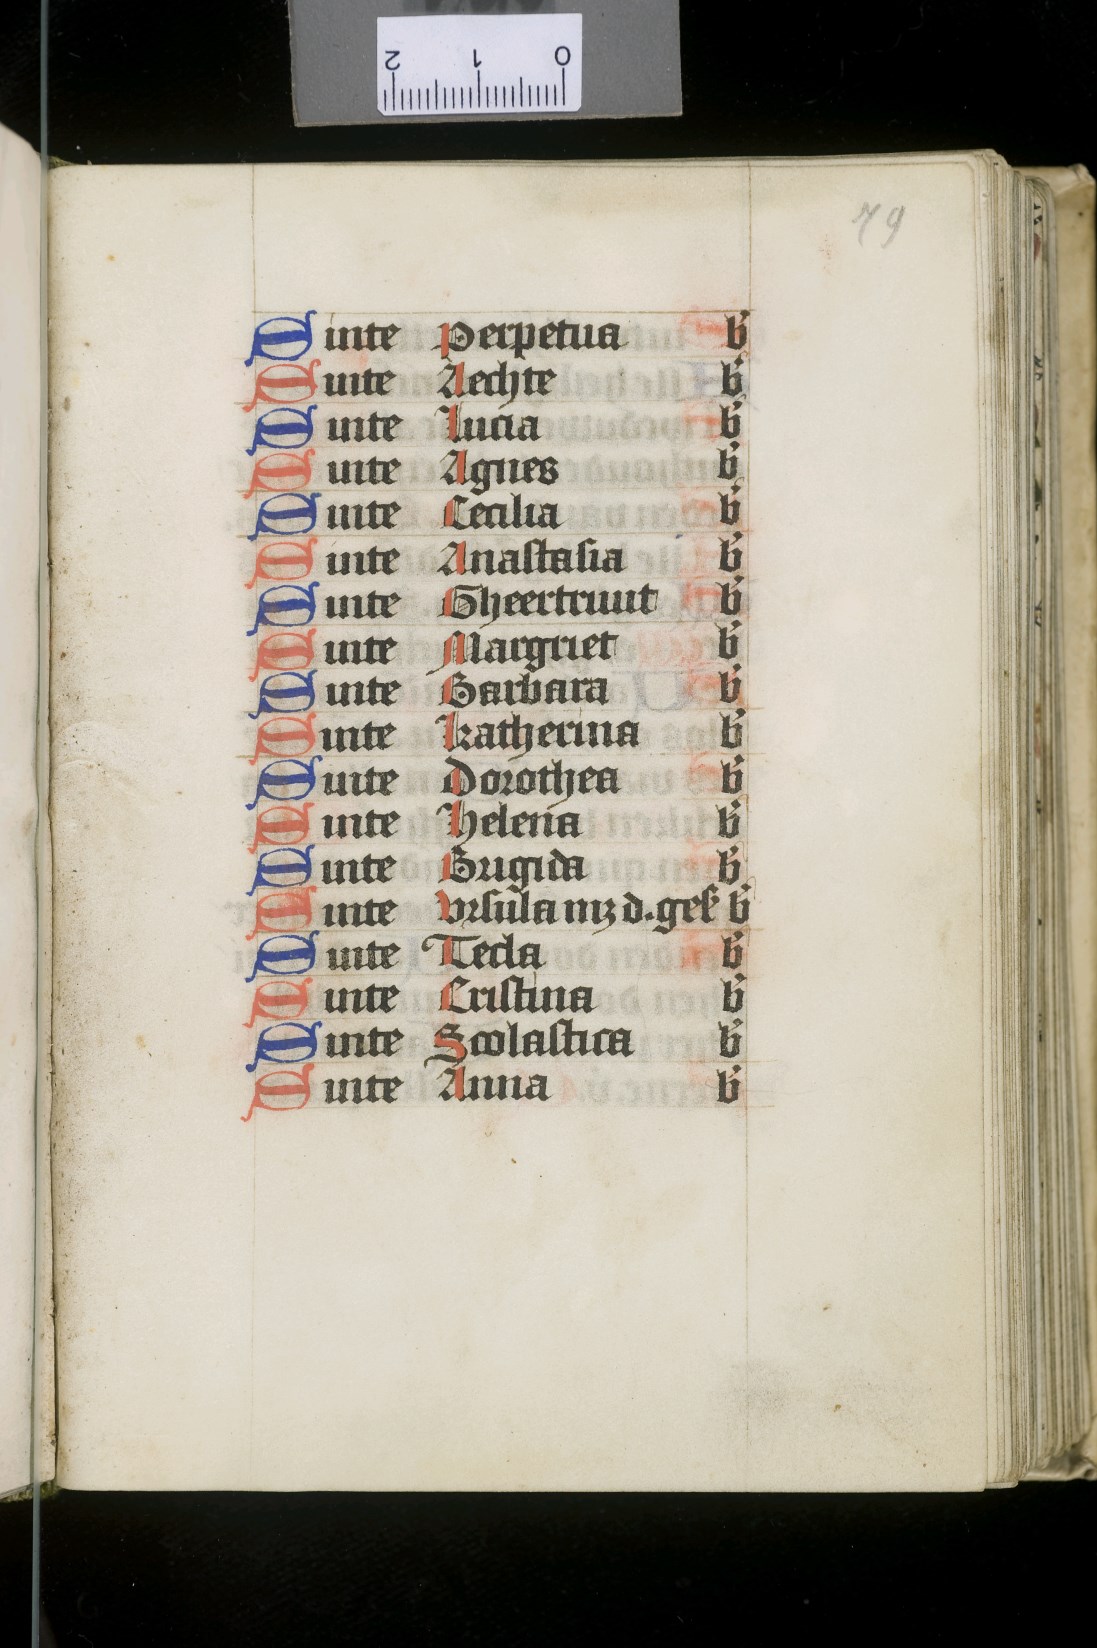 2 1 0
79
Sinte Perpetua b̄
Sinte Aechte b̄
Sinte Lucia b̄
Sinte Agnes b̄
Sinte Cecilia b̄
Sinte Anastasia b̄
Sinte Gheertruut b̄
Sinte Margriet b̄
Sinte Barbara b̄
Sinte Katherina b̄
Sinte Dorothea b̄
Sinte Helena b̄
Sinte Brigida b̄
Sinte Vrsula mz d. ges b̄
Sinte Tecla b̄
Sinte Cristina b̄
Sinte Scolastica b̄
Sinte Anna b̄